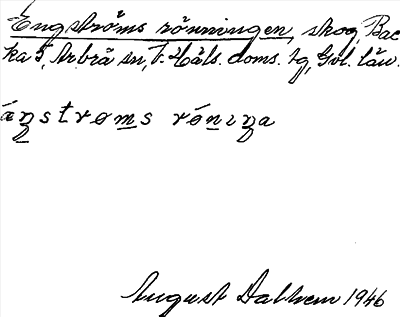 Engströms rönningen, skog, Bac
ka 5, Arbrå sn, V. Häls. doms. tg, Gvl. län.
áŋstrøms rǿnıŋa
August Dalhem 1946